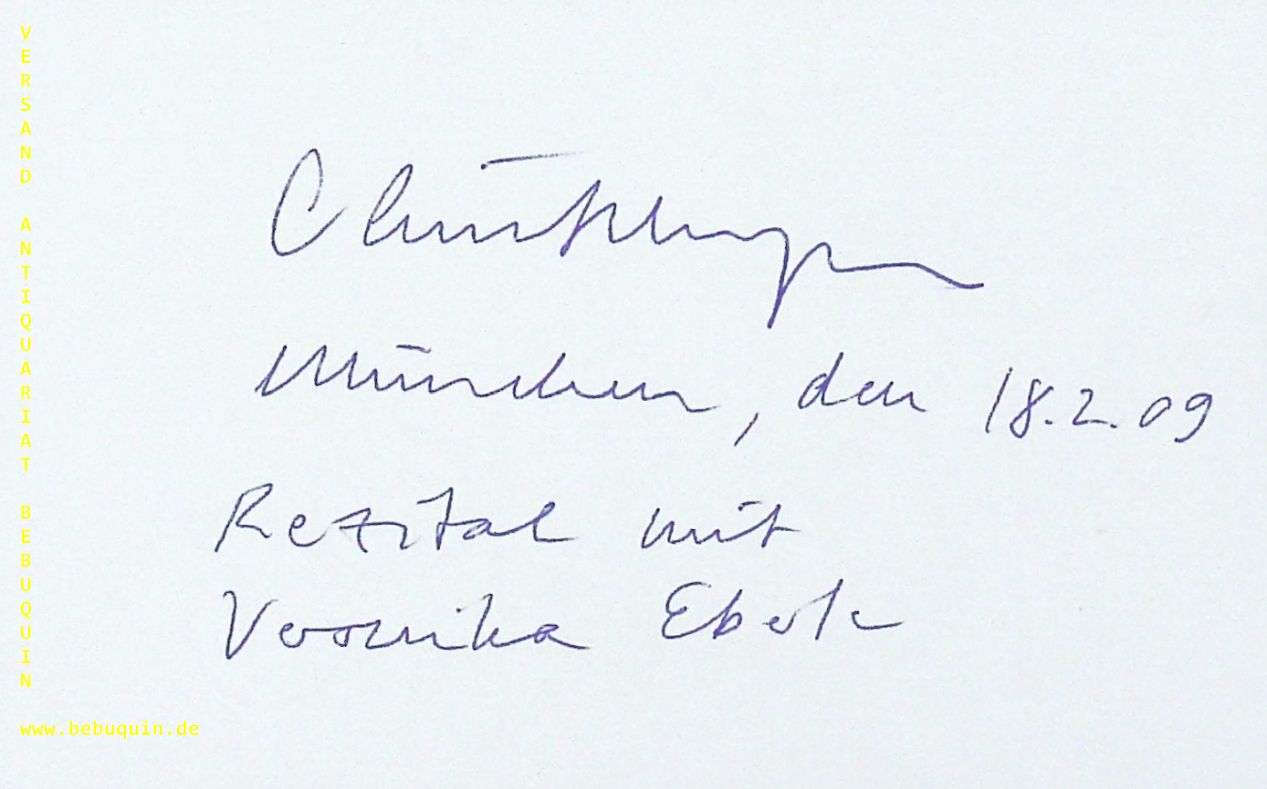 VERSAND ANTIQUARIAT BEBUQUIN
München, den 18.2.09
Rezital mit
Veronika Eberle
www.bebuquin.de